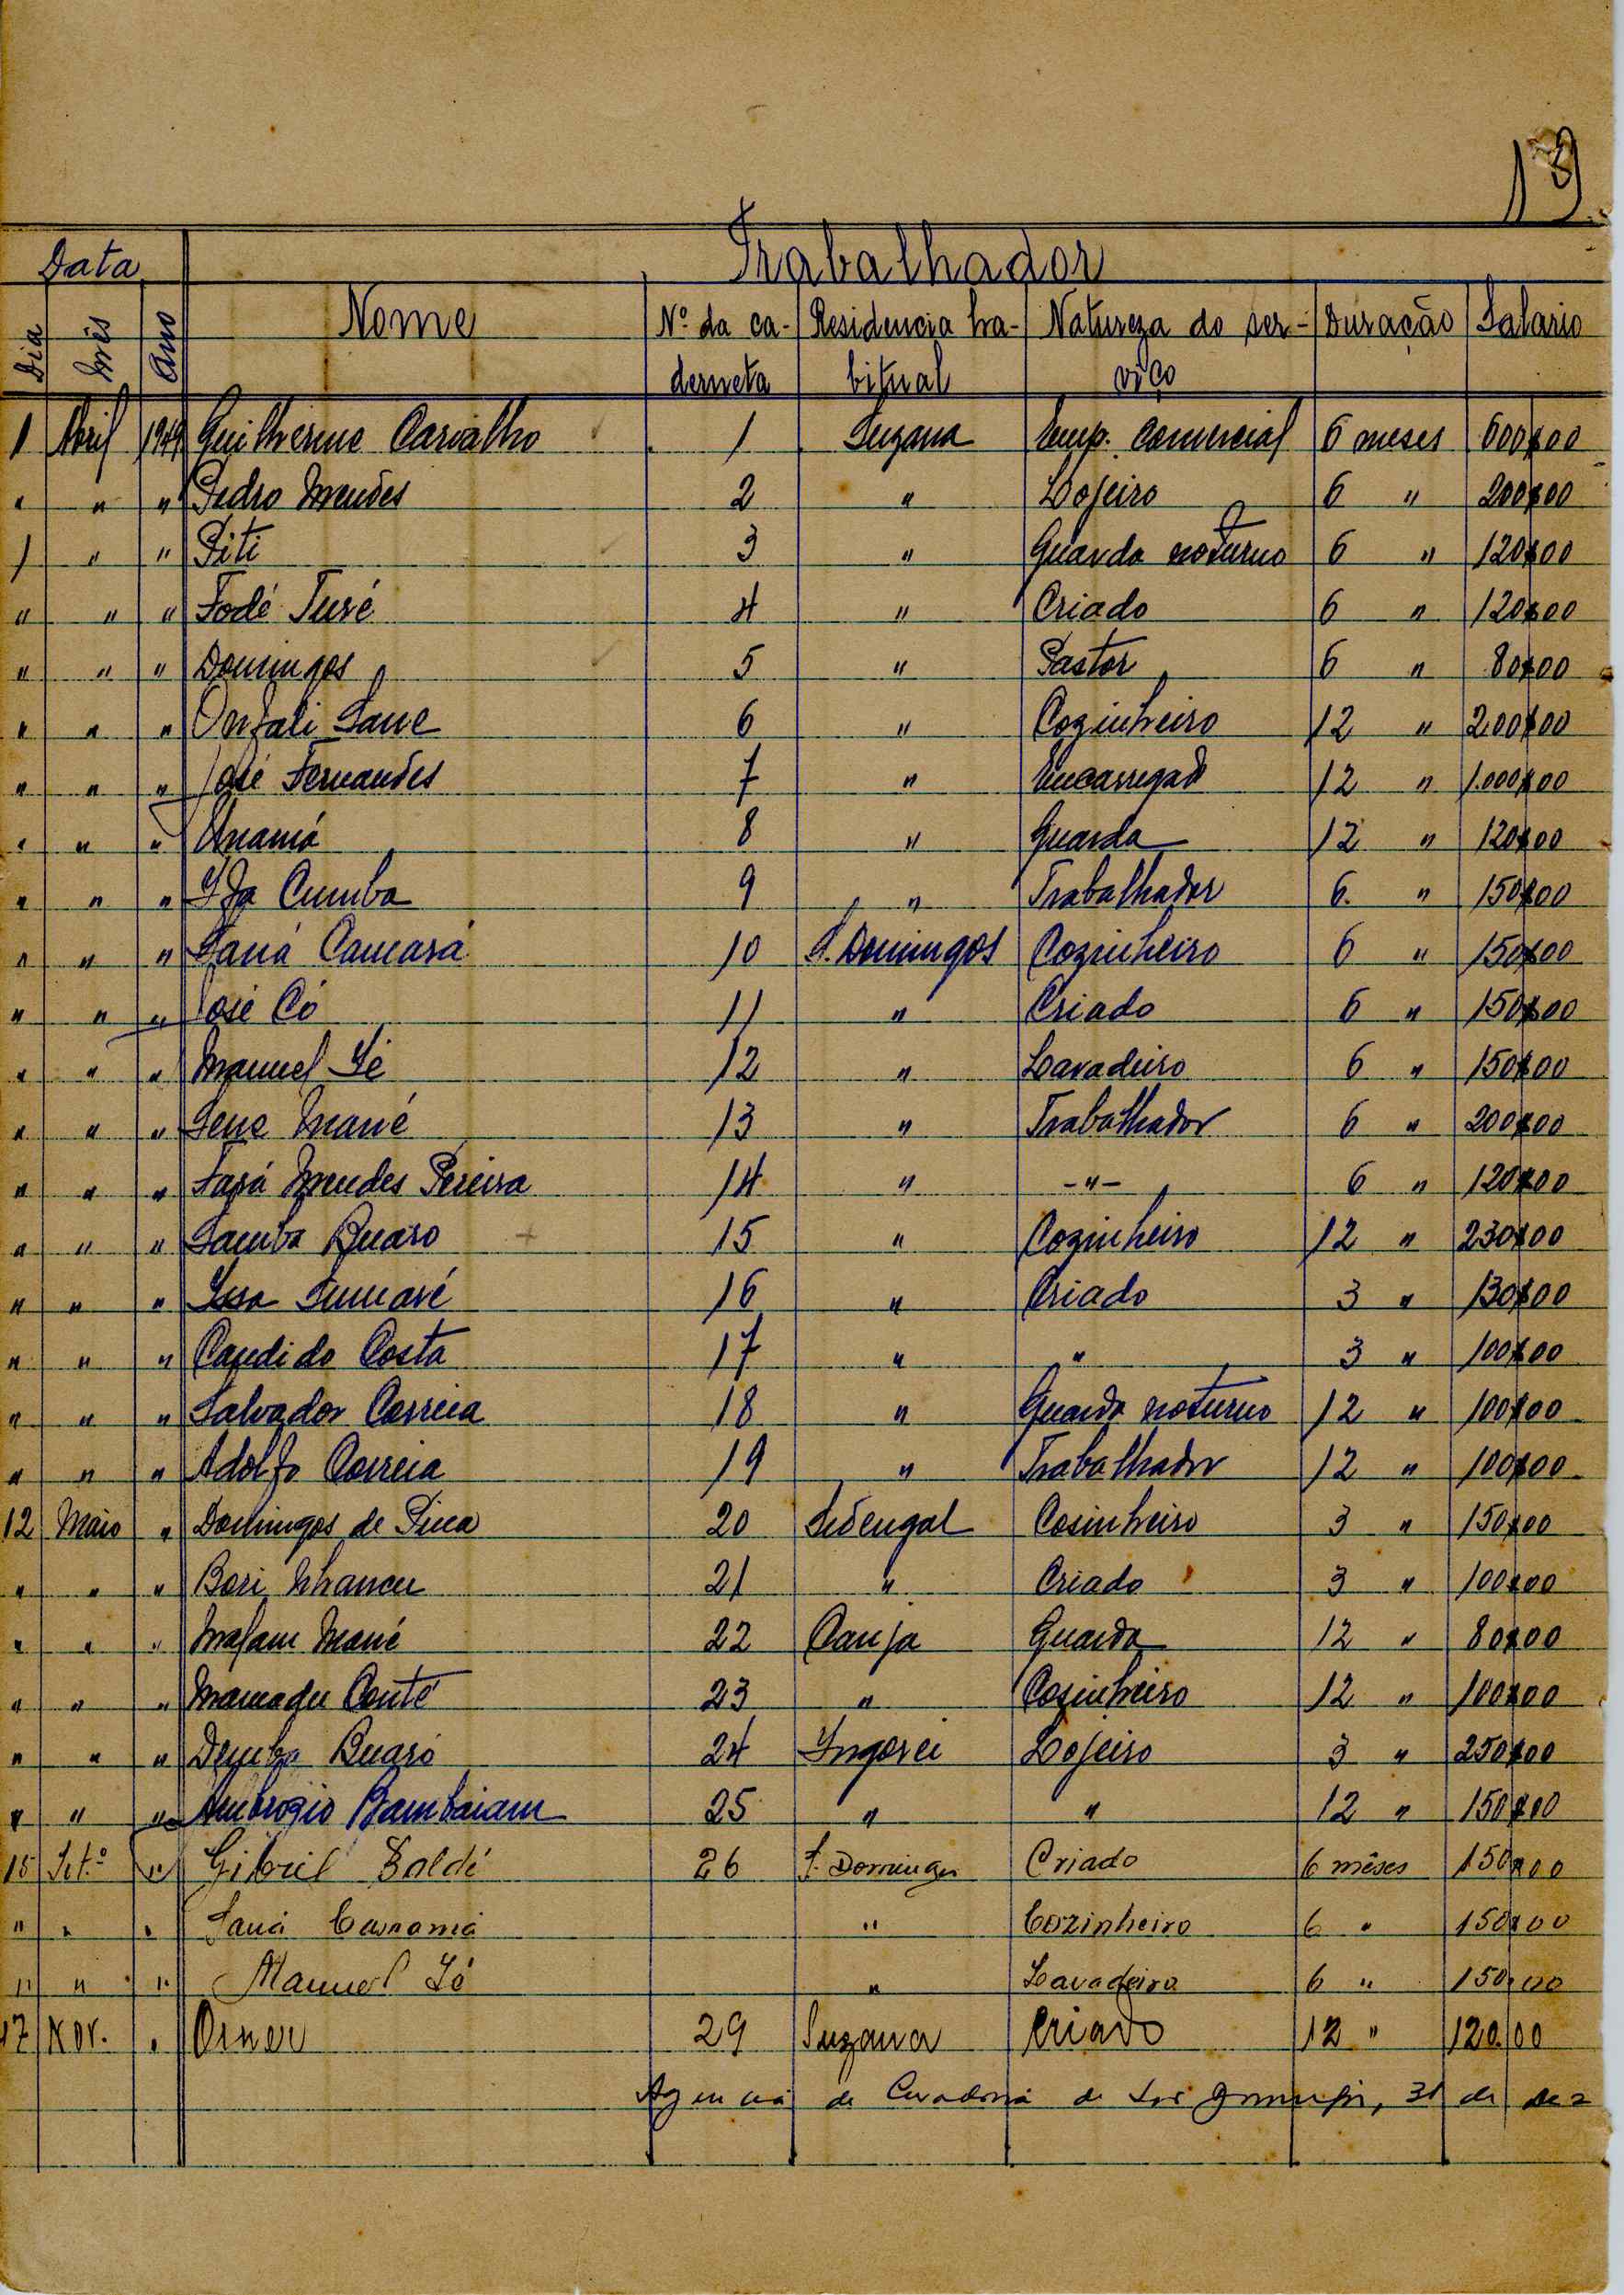 19
Data Trabalhador
Dia Mês Ano Nome Nº da ca- Residencia ha- Natureza do ser- Duração Salario
derneta bitual viço
1 Abril 1949 Guilherme Carvalho 1 Suzana Emp. Comercial 6 meses 600$00
" " " Pedro Mendes 2 " Lojeiro 6 " 200$00
1 " " Piti 3 " Guarda noturno 6 " 120$00
" " " Fodé Turé 4 " Criado 6 " 120$00
" " " Domingos 5 " Pastor 6 " 80$00
" " " Sane 6 " Cozinheiro 12 " 200$00
" " " José Fernandes 7 " Encarregado 12 " 1.000$00
" " " 8 " Guarda 12 " 120$00
" " " Cumba 9 " Trabalhador 6 " 150$00
" " " Saná Camará 10 S. Domingos Cozinheiro 6 " 150$00
" " " José Có 11 " Criado 6 " 150$00
" " " Manuel Sé 12 " Lavadeiro 6 " 150$00
" " " Mané 13 " Trabalhador 6 " 200$00
" " " Mendes Pereira 14 " -"- 6 " 120$00
" " " Samba Buaro 15 " Cozinheiro 12 " 230$00
" " " Issa Sumaré 16 " Criado 3 " 130$00
" " " Candido Costa 17 " " 3 " 100$00
" " " Salvador Correia 18 " Guarda noturno 12 " 100$00
" " " Adolfo Correia 19 " Trabalhador 12 " 100$00
12 Maio " Domingos de Pina 20 Sedengal Cosinheiro 3 " 150$00
" " " Bori Nhancu 21 " Criado 3 " 100$00
" " " Malam Mané 22 Canja Guarda 12 " 80$00
" " " Mamadu Conté 23 " Cosinheiro 12 " 100$00
" " " Demba Buaró 24 Ingorei Lojeiro 3 " 250$00
" " " Ambrozio Bambaiam 25 " " 12 " 150$00
15 Set.º " Gibril Baldé 26 S. Domingos Criado 6 mêses 150$00
" " " Saná " Cozinheiro 6 " 150$00
" " " Manuel Sé " Lavadeiro 6 " 150,00
17 Nov. " 29 Suzana Criado 12 " 120.00
Agencia de Curadoria de São Domingos, 31 de Dez